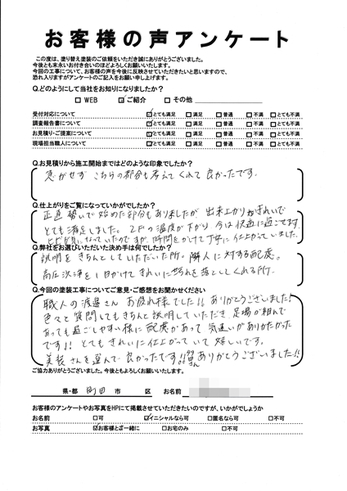 お客様の声アンケート
この度は、塗り替え塗装のご依頼をいただき誠にありがとうございました。
今後とも末永いお付き合いのほどよろしくお願いいたします。
今回の工事について、お客様の声を今後に反映させていただきたいと思いますので、
恐れ入りますがアンケートのご記入をお願い申し上げます。
Q.どのようにして当社をお知りになりましたか?
□WEB ☑ご紹介 □その他
受付対応について ☑とても満足 □満足 □普通 □不満 □とても不満
調査報告書について ☑とても満足 □満足 □普通 □不満 □とても不満
お見積り・ご提案について ☑とても満足 □満足 □普通 □不満 □とても不満
現場担当職人について ☑とても満足 □満足 □普通 □不満 □とても不満
Q.お見積りから施工開始まではどのような印象でしたか?
急かせず こちらの都合も考えてくれて良かったです。
Q.仕上がりをご覧になっていかがでしたか?
正直 勢いで始めた部分もありましたが 出来上がりがきれいで
とても満足しました。2Fの温度が下がり 今は快適に過ごてます
時間をかけて丁寧に仕上がっていました。
Q.弊社をお選びいただいた決め手は何でしたか?
説明をきちんとしていただいた所。隣人に対する配慮。
高圧洗浄を1日かけてきれいに汚れを落としてくれる所。
Q.今回の塗装工事についてご意見・ご感想をお聞かせください
職人の渡邉さん お疲れ様でした!! ありがとうございました!
色々と質問してもきちんと説明していただき 足場が組んで
あっても過ごしやすい様に配慮があって 気遣いがありがたかった
です!! とてもきれいに仕上がっていて嬉しいです。
美装さんを選んで良かったです!! ありがとうございました!!
ご協力ありがとうございました。今後ともよろしくお願いいたします。
県・都 町田 市 区 お名前
お客様のアンケートやお写真をHPにて掲載させていただきたいのですが、いかがでしょうか
お名前 □可 ☑イニシャルなら可 □匿名なら可 □不可
お写真 ☑お客様とご一緒に □お宅のみ □不可